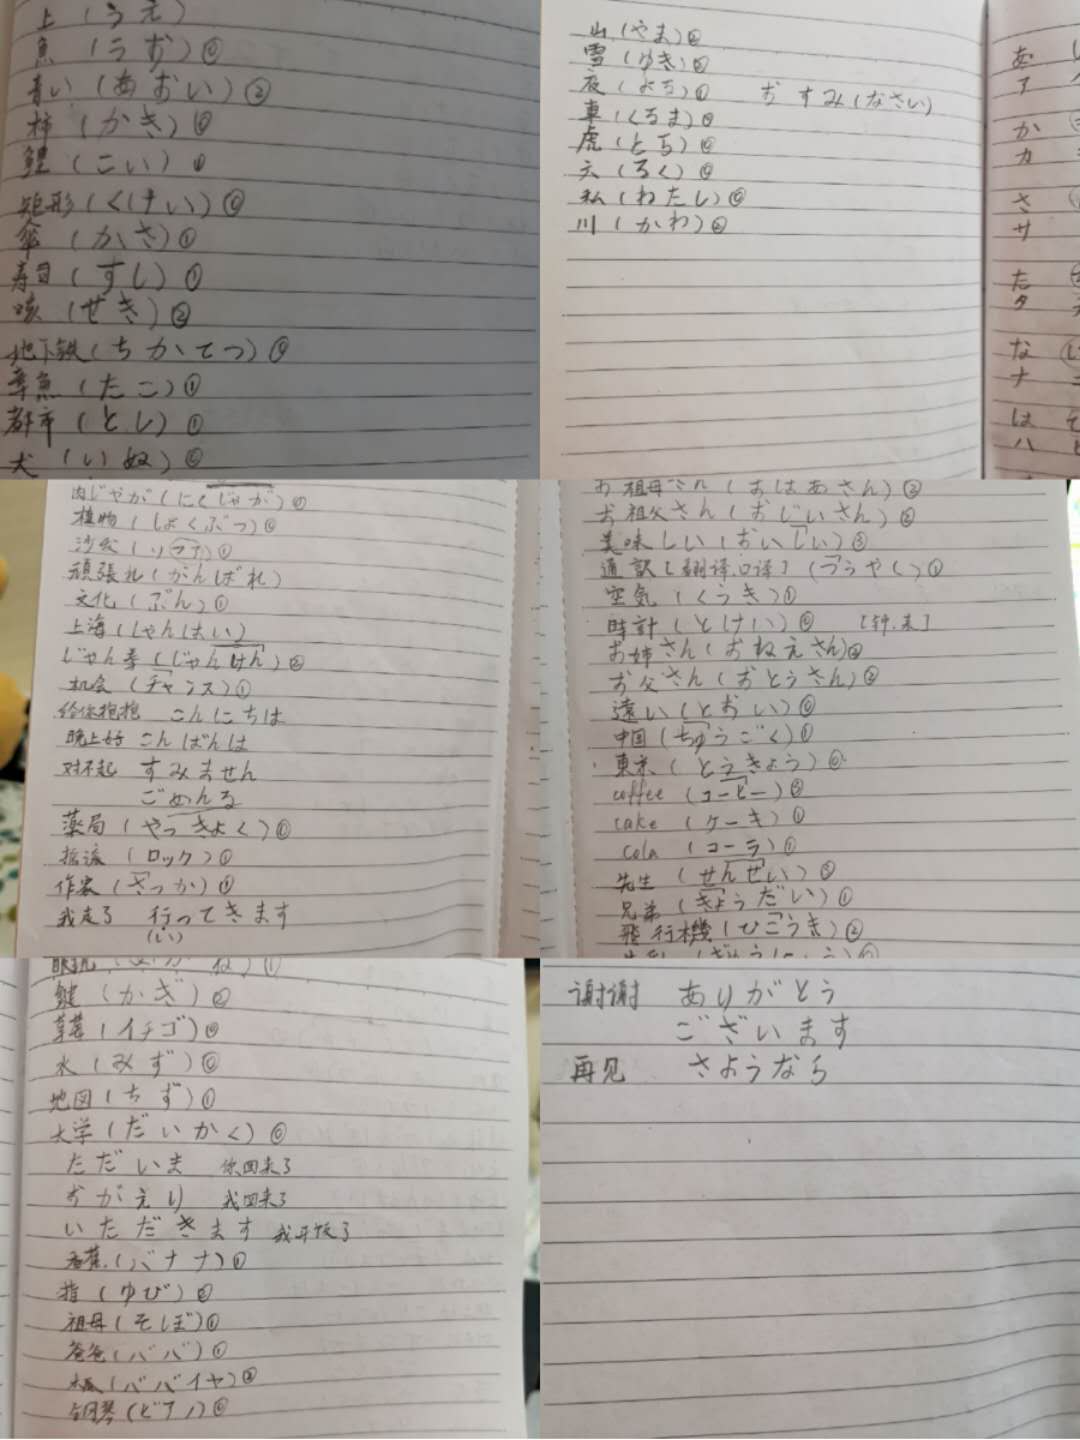 上 (うえ)
魚 (うお) ⓪
青い (あおい) ②
柿 (かき) ⓪
鯉 (こい) ①
矩形 (くけい) ⓪
傘 (かさ) ①
寿司 (すし) ①
咳 (せき) ②
地下鉄 (ちかてつ) ⓪
章魚 (たこ) ①
都市 (とし) ①
犬 (い奴) ②
山 (やま) ②
雪 (ゆき) ②
夜 (よる) ① おすみ(なさい)
車 (くるま) ⓪
虎 (とら) ⓪
六 (ろく) ⓪
私 (わたし) ⓪
川 (かわ) ②
あ
ア
か
カ
さ
サ
た
タ
な
ナ
は
ハ
肉じゃが (にくじゃが) ⓪
植物 (しょくぶつ) ②
沙发 (ソファ) ①
頑張れ (がんばれ)
文化 (ぶん) ①
上海 (しゃんはい)
じゃん拳 (じゃんけん) ③
机会 (チャンス) ①
给你抱抱 こんにちは
晚上好 こんばんは
对不起 すみません
ごめんる
薬局 (やっきょく) ⓪
摇滚 (ロック) ①
作家 (さっか) ①
我走了 行ってきます
(い)
お祖母さん (おばあさん) ②
お祖父さん (おじいさん) ②
美味しい (おいしい) ③
通訳 [翻译.口译] (つうやく) ①
空気 (くうき) ①
時計 (とけい) ⓪ [钟.表]
お姉さん (おねえさん) ②
お父さん (おとうさん) ②
遠い (とおい) ⓪
中国 (ちゅうごく) ①
東京 (とうきょう) ⓪
coffee (コーヒー) ③
cake (ケーキ) ①
cola (コーラ) ①
先生 (せんせい) ③
兄弟 (きょうだい) ①
飛行機 (ひこうき) ②
鍵 (かぎ) ②
草莓 (イチゴ) ⓪
水 (みず) ⓪
地図 (ちず) ①
大学 (だいかく) ⓪
ただいま 你回来了
おがえり 我回来了
いただきます 我开饭了
香蕉 (バナナ) ①
指 (ゆび) ②
祖母 (そぼ) ①
爸爸 (パパ) ①
木瓜 (パパイヤ) ②
钢琴 (ピアノ) ⓪
谢谢 ありがとう
ございます
再见 さようなら